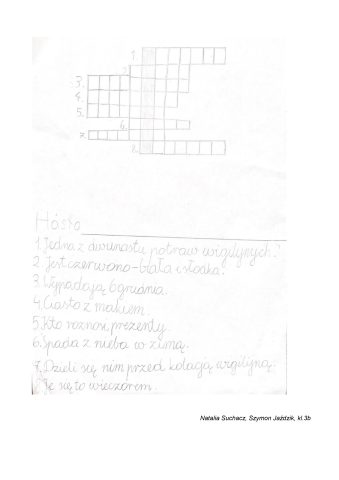 1.
2.
3.
4.
5.
6.
7.
8.
Hasło
1. Jedna z dwunastu potraw wigilijnych?
2. Jest czerwono-biała i słodka?
3. Wypadają 6 grudnia.
4. Ciasto z makiem.
5. Kto roznosi prezenty.
6. Spada z nieba w zimą.
7. Dzieli się nim przed kolacją wigilijną.
Je się to wieczorem.
Natalia Suchacz, Szymon Jaździk, kl.3b